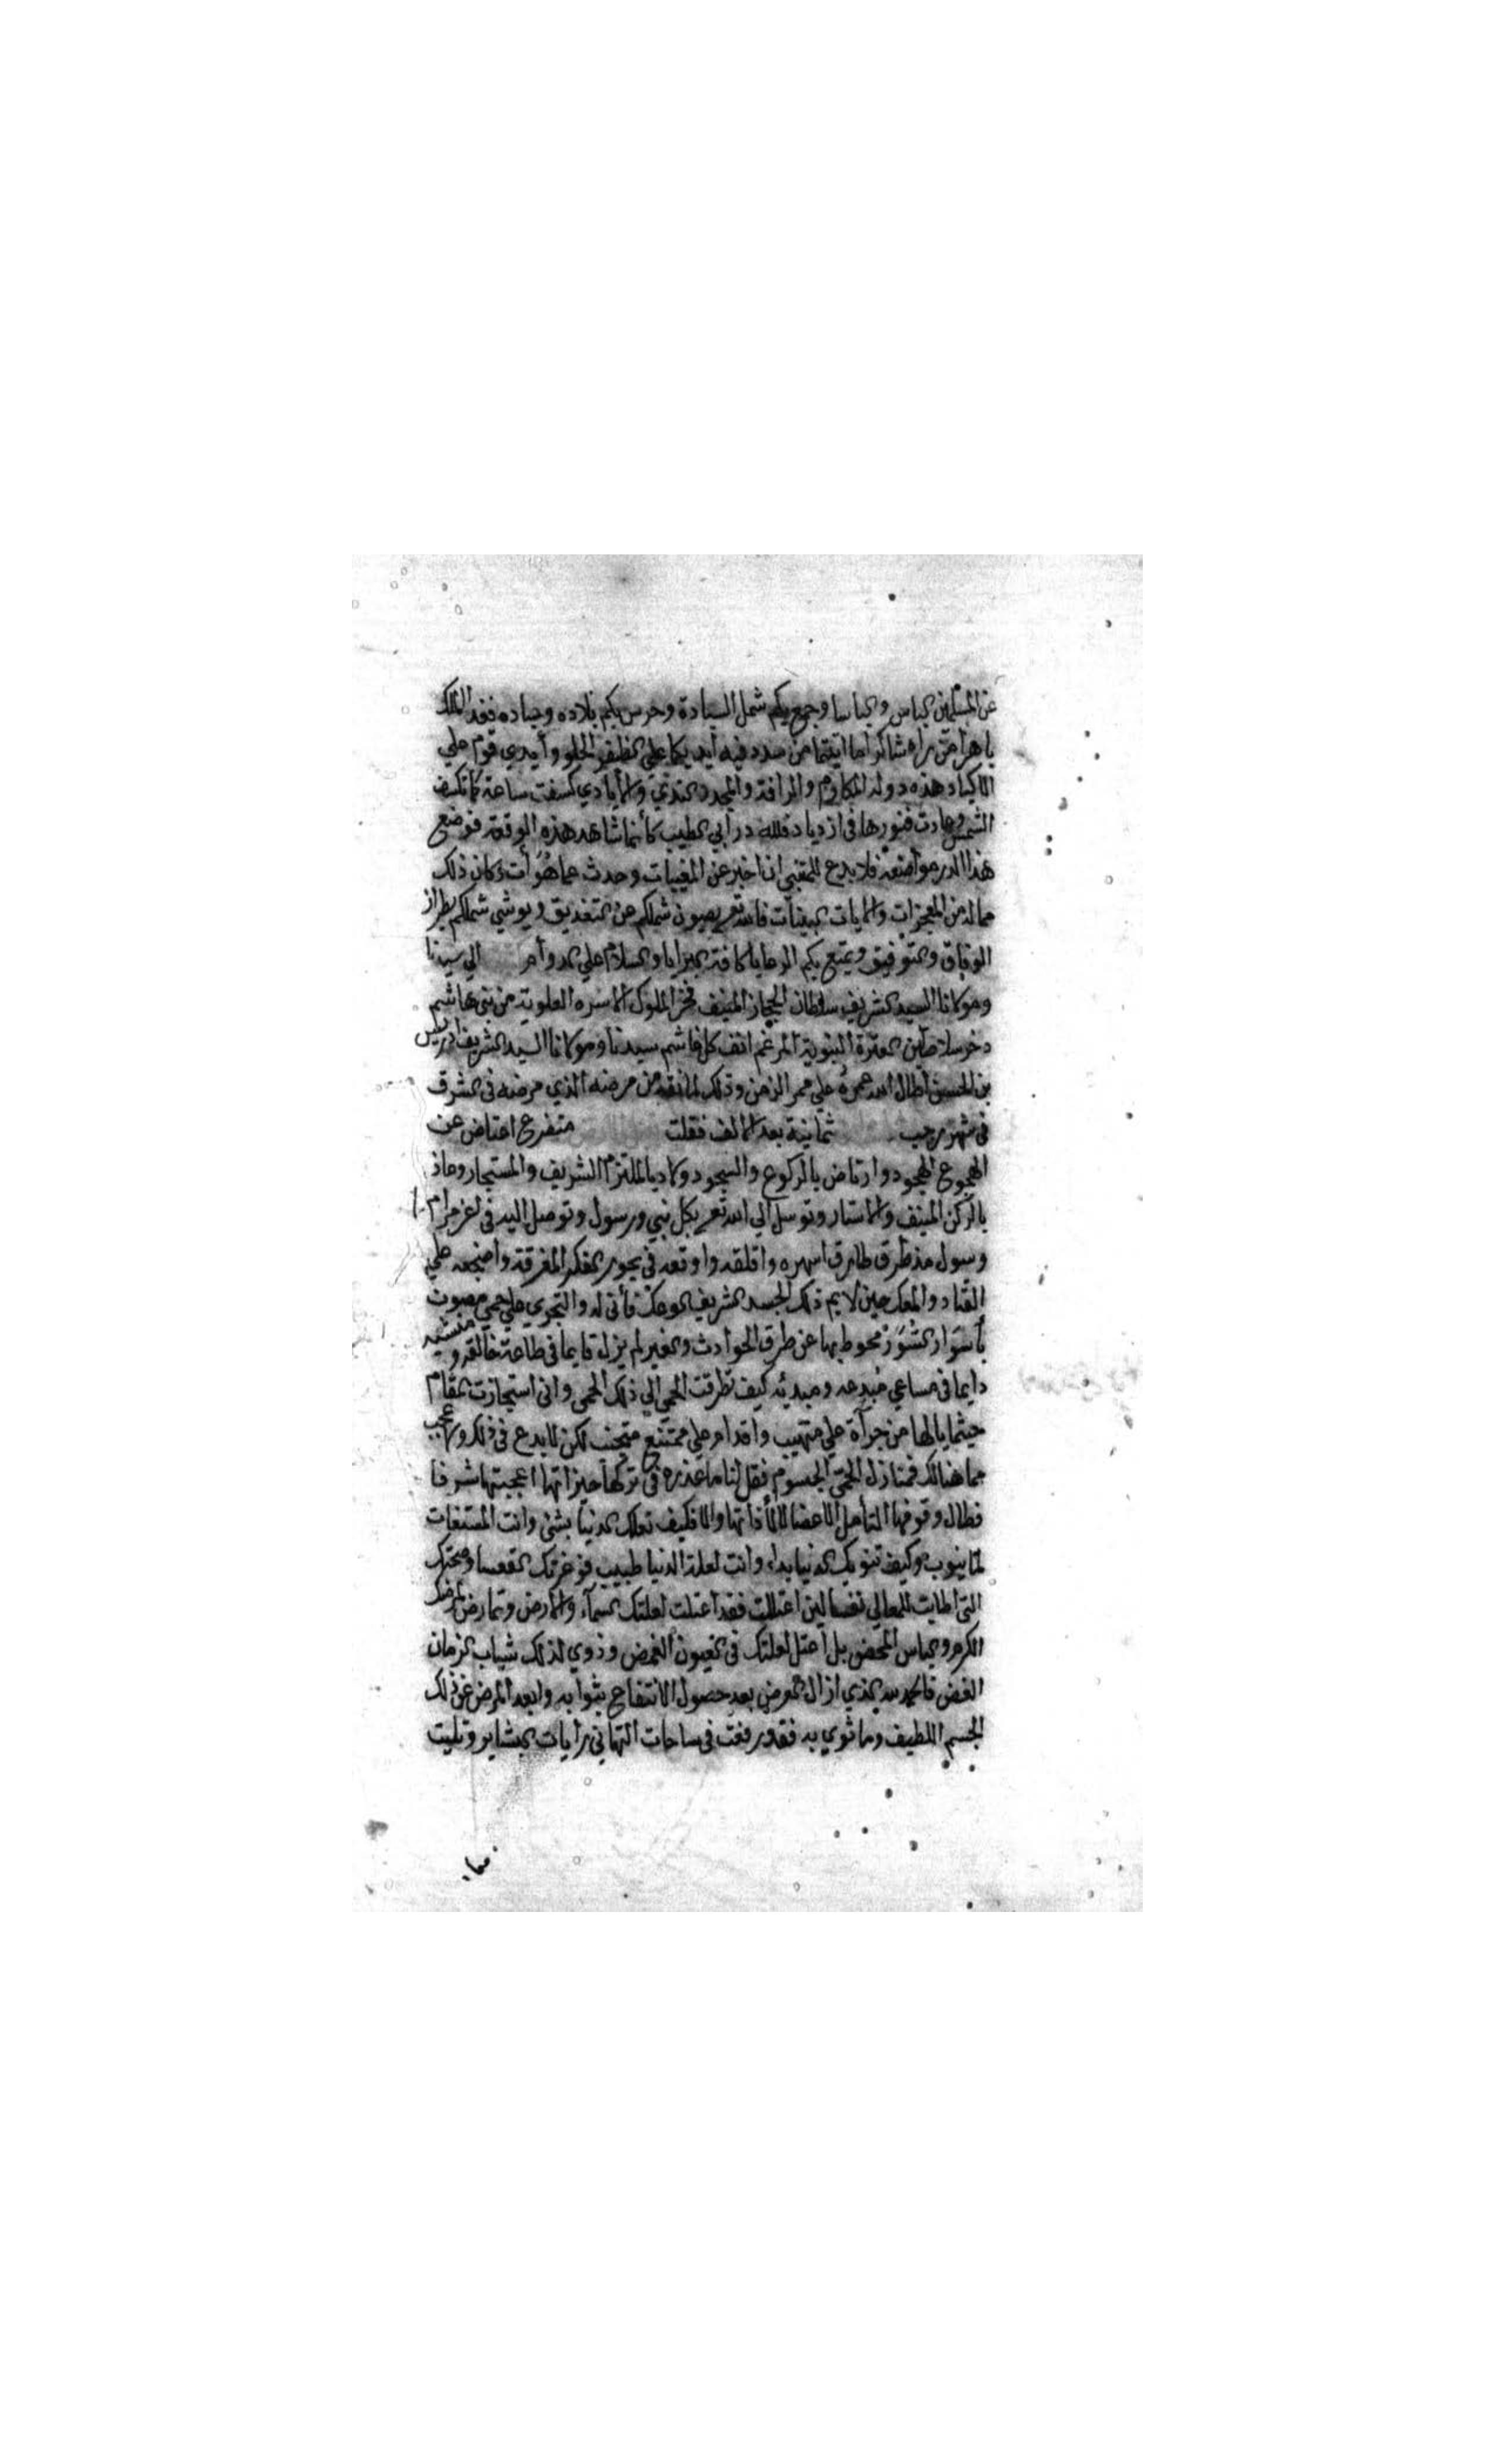 عن المسلمين الباس والباسا وجمع بكم شمل السيادة وحرس بكم بلاده وعباده فغدا الملك
باهرا من راه شاكرا ما ايتما من سدد فيه ايديكما على الظفر الحلو وأيدي قوم على
الاكباد هذه دولة المكارم والرافة والمجد والندي والأيادي كسفت ساعة كما تكسف
الشمس وعادت فنورها في ازدياد فلله در أبي الطيب كأنما شاهد هذه الوقعة فوضع
هذا الدر مواضعه فلا بدع للمتنبي ان اخبر عن المغيبات وحدث عما هو أت وكان ذلك
مما له من المعجزات والايات البينات فالله تعالى يصون شملكم عن التفريق ويوشي شملكم بطراز
الوفاق والتوفيق ويمتع بكم الرعايا كافة البرايا والسلام على الدوام الي سيدنا
ومولانا السيد الشريف سلطان الحجاز المنيف فخر الملوك الاسرة العلوية من بني هاشم
وخوسلاطين العترة النبوية المرغم انف كل غاشم سيدنا ومولانا السيد الشريف ادريس
بن الحسن اطال الله عمره علي ممر الزمن وذلك لما نقه من مرضه الذي مرضه في الشرق
في شهر رجب ثمانية بعد الالف فقلت متضرع اعتاض عن
الهجوع الهجود وارتاض بالركوع والسجود ولاذ بالملتزم الشريف والمستجار وعاذ
بالركن المنيف والاستار وتوسل الي الله تعالى بكل نبي ورسول وتوصل اليه في اعز مرام
وسول مذ طرق طارق اسهره واقلقه واوقعه في بحور الفكر المغرقة واضجعه علي
القتاد والمعك حين لايم ذلك الجسد الشريف الوعك فأنى له والتجري على حمي مصون
بأسوار السور محوط بها عن طرق الحوادث والغير لم يزل قايما في طاعة خالقه ومنشيه
دايما في مساعي مبدعه ومبديه كيف تطرقت الحمي الي ذلك الحمى واني استجازت المقام
حيثما يالها من جرآة علي متهيب واقدام علي ممتنع متجنب لكن لا بدع في ذلك ولا عجب
مما هنالك فمنازل الحمي الجسوم فقل لنا ما عذره في تركها خيراتها اعجبتها شرفا
فطال وقوفها لتأمل الاعضا لا لأذاتها والا فكيف تعلك الدنيا بشئ وانت المستغاث
لما ينوب وكيف تنوبك الدنيا بداء وانت لعلة الدنيا طبيب فوعزتك القعسا ومحتدك
التي اطابت للمعالي نفسا لين اعتللت فقد اعتلت لعلتك السماء والارض وتمارض لمرضك
الكرم والباس المحض بل اعتل لعلتك في العيون الغمض وذوي لذلك شباب الزمان
الغض فالحمد لله الذي ازال المرض بعد حصول الانتفاع بثوابه وابعد المرض عن ذلك
الجسم اللطيف وما ثوي به فقد رفعت في ساحات التهاني رايات البشاير وتليت